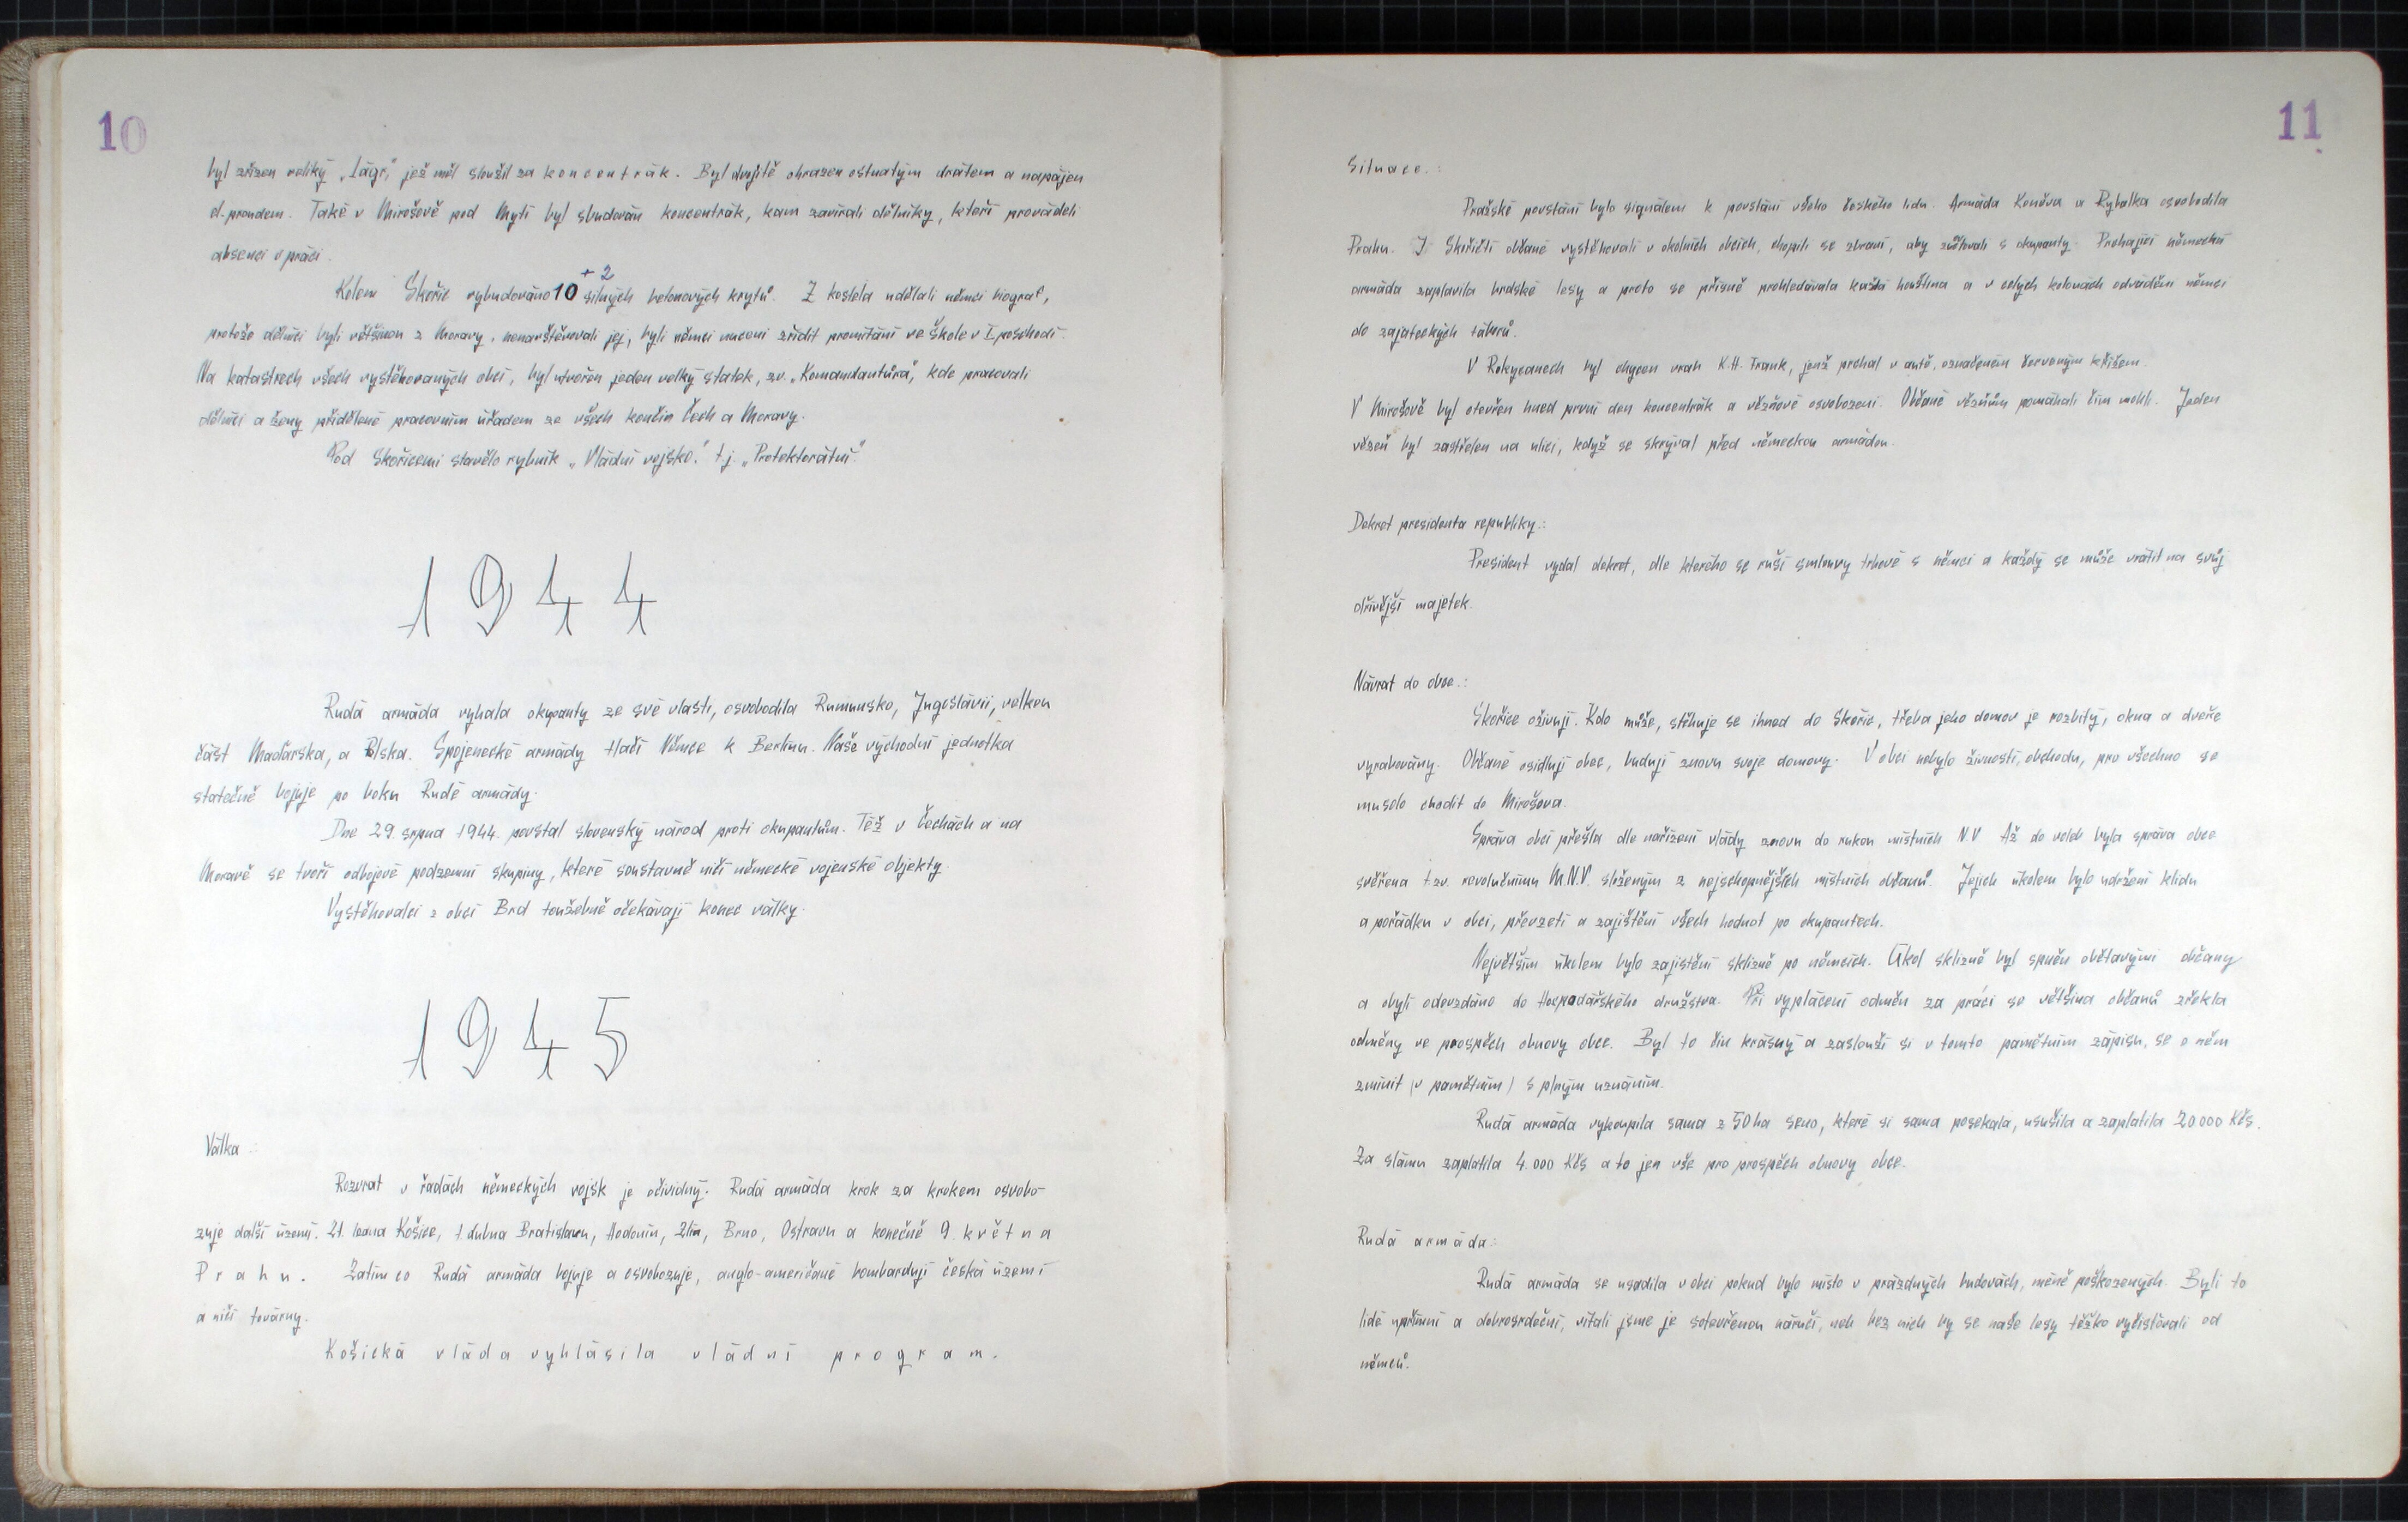 10
byl zřízen veliký „lágr", jež měl sloužil za koncentrák. Byl dvojitě ohrazen ostnatým drátem a napájen
el. proudem. Také v Mirošově pod Mytí byl sbudován koncentrák, kam zavírali dělníky, kteří prováděli
absenci v práci.
+ 2
Kolem Skořic vybudováno 10 silných betonových krytů. Z kostela udělali němci biograf,
protože dělníci byli většinou z Moravy, nenavštěvovali jej, byli němci nuceni zřídit promítání ve škole v I. poschodí.
Na katastrech všech vystěhovaných obcí, byl utvořen jeden velký statek, zv. „Komandantůra", kde pracovali
dělníci a ženy přidělené pracovním úřadem ze všech končin Čech a Moravy.
Pod Skořicemi stavělo rybník „Vládní vojsko." t.j. „Protektorátní".
1944
Rudá armáda vyhala okupanty ze své vlasti, osvobodila Rumunsko, Jugoslávii, velkou
část Maďarska, a Polska. Spojenecké armády tlačí Němce k Berlínu. Naše východní jednotka
statečně bojuje po boku Rudé armády.
Dne 29. srpna 1944. povstal slovenský národ proti okupantům. Též v Čechách a na
Moravě se tvoří odbojové podzemní skupiny, které soustavně ničí německé vojenské objekty.
Vystěhovalci z obcí Brd toužebně očekávají konec války.
1945
Válka :
Rozvrat v řadách německých vojsk je očividný. Rudá armáda krok za krokem osvobo-
zuje další území. 21. ledna Košice, 1. dubna Bratislavu, Hodonín, Zlín, Brno, Ostravu a konečně 9. května
Prahu. Zatím co Rudá armáda bojuje a osvobozuje, anglo-američané bombardují česká území
a ničí továrny.
Košická vláda vyhlásila vládní program.
11
Situace.:
Pražské povstání bylo signálem k povstání všeho českého lidu. Armáda Koněva a Rybalka osvobodila
Prahu. I Skořičtí občané vystěhovali v okolních obcích, chopili se zbraní, aby zůčtovali s okupanty. Prchající německá
armáda zaplavila brdské lesy a proto se přísně prohledávala každá houština a v celých kolonách odváděni němci
do zajateckých táborů.
V Rokycanech byl chycen vrah K.H. Frank, jenž prchal v autě, označeném červeným křížem.
V Mirošově byl otevřen hned první den koncentrák a vězňové osvobozeni. Občané vězňům pomáhali čím mohli. Jeden
vězeň byl zastřelen na ulici, když se skrýval před německou armádou.
Dekret presidenta republiky.:
President vydal dekret, dle kterého se ruší smlouvy trhové s němci a každý se může vrátit na svůj
dřívější majetek.
Návrat do obce.:
Skořice ožívují. Kdo může, stěhuje se ihned do Skořic, třeba jeho domov je rozbitý, okna a dveře
vyrabovány. Občané osidlují obec, budují znovu svoje domovy. V obci nebylo živností, obchodu, pro všechno se
muselo chodit do Mirošova.
Správa obcí přešla dle nařízení vlády znovu do rukou místních N.V. Až do voleb byla správa obce
svěřena t.zv. revolučnímu M.N.V. složeným z nejschopnějších místních občanů. Jejich úkolem bylo udržení klidu
a pořádku v obci, převzetí a zajištění všech hodnot po okupantech.
Největším úkolem bylo zajistění sklizně po němcích. Úkol sklizně byl spněn obětavými občany
a obylí odevzdáno do Hospodářského družstva. Při vyplácení odměn za práci se většina občanů zřekla
odměny ve prospěch obnovy obce. Byl to čin krásný a zaslouží si v tomto pamětním zápisu, se o něm
zmínit (v pamětním) s plným uznáním.
Rudá armáda vykoupila sama z 50 ha seno, které si sama posekala, usušila a zaplatila 20.000 Kčs.
Za slámu zaplatila 4.000 Kčs a to jen vše pro prospěch obnovy obce.
Rudá armáda:
Rudá armáda se usadila v obci pokud bylo místo v prázdných budovách, méně poškozených. Byli to
lidé upřímní a dobrosrdeční, vítali jsme je sotevřenou náručí, neb bez nich by se naše lesy těžko vyčistovali od
němců.